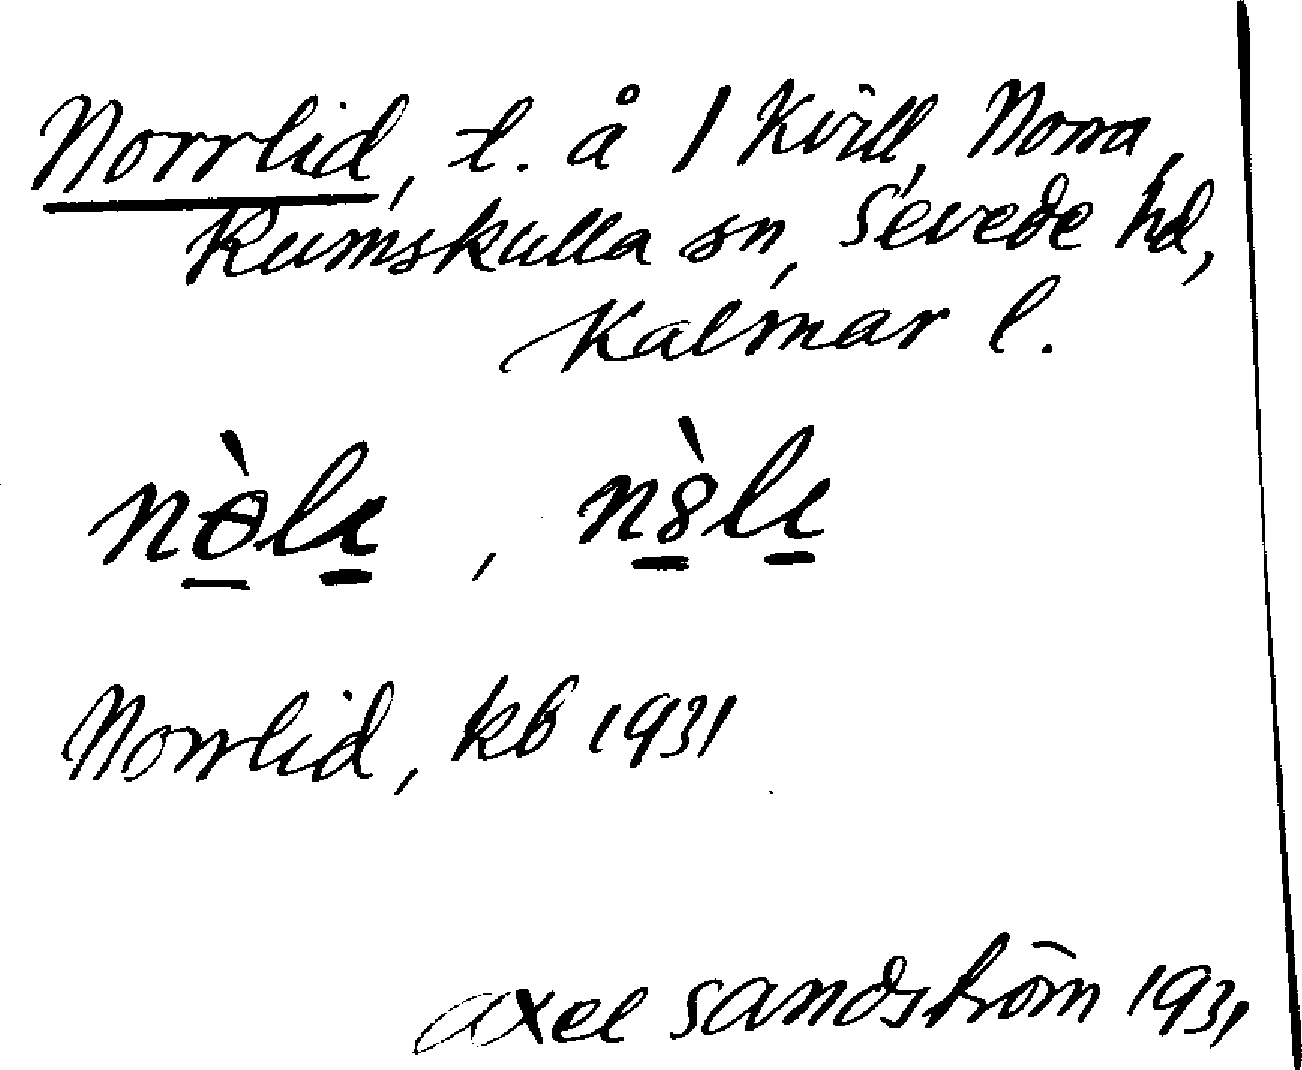 Norrlid, t. å 1 Kvill, Norra,
Rumskulla sn, Sevede hd,
Kalmar l.
Norrlid, kb 1931
Axel Sandström 1931